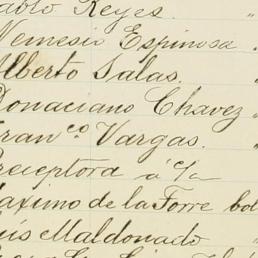 ablo Reyes. "
Nemesio Espinosa "
Alberto Salas. "
Bonaciano Chavez "
Fran^co Vargas. "
Preceptora á c/a
Maximo de la Torre bol
Luis Maldonado "